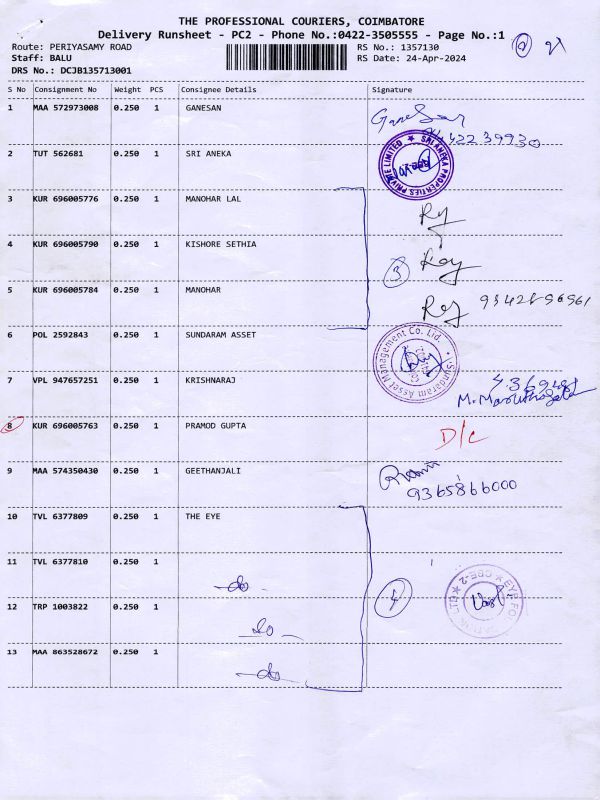 THE PROFESSIONAL COURIERS, COIMBATORE
Delivery Runsheet - PC2 - Phone No.:0422-3505555 - Page No.:1
Route: PERIYASAMY ROAD RS No.: 1357130
Staff: BALU RS Date: 24-Apr-2024
DRS No.: DCJB135713001
S No Consignment No Weight PCS Consignee Details Signature
1 MAA 572973008 0.250 1 GANESAN Ganesan
2 TUT 562681 0.250 1 SRI ANEKA SRI ANEKA PROPERTIES PRIVATE LIMITED
3 KUR 696005776 0.250 1 MANOHAR LAL
4 KUR 696005790 0.250 1 KISHORE SETHIA 3
5 KUR 696005784 0.250 1 MANOHAR
6 POL 2592843 0.250 1 SUNDARAM ASSET Sundaram Asset Management Co. Ltd.
7 VPL 947657251 0.250 1 KRISHNARAJ
8 KUR 696005763 0.250 1 PRAMOD GUPTA D/C
9 MAA 574350430 0.250 1 GEETHANJALI 9365866000
10 TVL 6377809 0.250 1 THE EYE
11 TVL 6377810 0.250 1 do
12 TRP 1003822 0.250 1 do 4
13 MAA 863528672 0.250 1 do